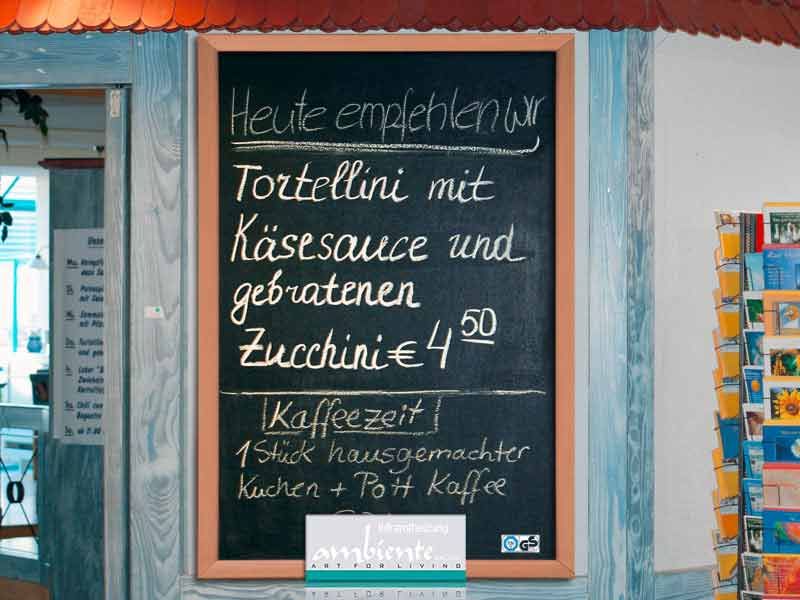 Heute empfehlen wir
Tortellini mit
Käsesauce und
gebratenen
Zucchini € 4 50
Kaffeezeit
1 Stück hausgemachter
Kuchen + Pott Kaffee
Infrarotheizung
ambiente
ART FOR LIVING
GS